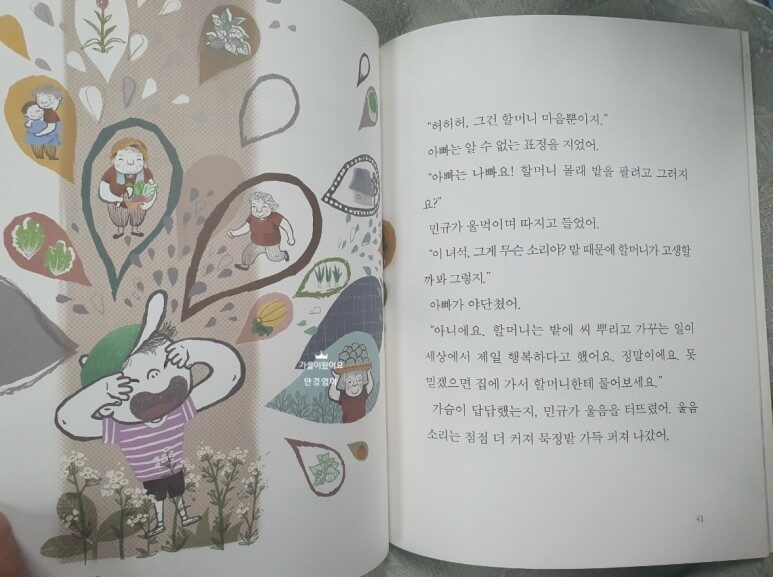 가을이왔어요
안경엄마
"허허허, 그건 할머니 마음뿐이지."
아빠는 알 수 없는 표정을 지었어.
"아빠는 나빠요! 할머니 몰래 밭을 팔려고 그러지
요?"
민규가 울먹이며 따지고 들었어.
"이 녀석, 그게 무슨 소리야? 밭 때문에 할머니가 고생할
까 봐 그렇지."
아빠가 야단쳤어.
"아니에요. 할머니는 밭에 씨 뿌리고 가꾸는 일이
세상에서 제일 행복하다고 했어요. 정말이에요. 못
믿겠으면 집에 가서 할머니한테 물어보세요."
가슴이 답답했는지, 민규가 울음을 터뜨렸어. 울음
소리는 점점 더 커져 묵정밭 가득 퍼져 나갔어.
41